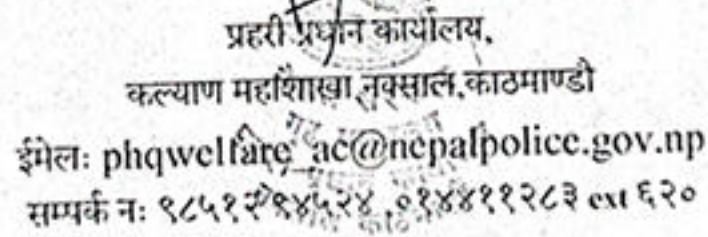 प्रहरी प्रधान कार्यालय,
कल्याण महाशाखा,नक्साल,काठमाण्डौ
ईमेलः phqwelfare_ac@nepalpolice.gov.np
सम्पर्क नः ९८५१२९४५२४ ,०१४४११२८३ ext ६२०